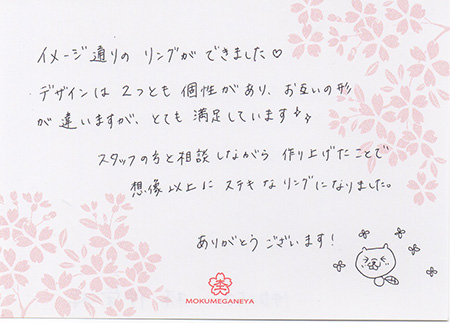 イメージ通りの リングが できました♡
デザインは 2つとも 個性があり、お互いの形
が 違いますが、とても 満足しています✨
スタッフの方と相談しながら 作り上げたことで
想像以上に ステキなリングになりました。
ありがとう ございます!
MOKUMEGANEYA